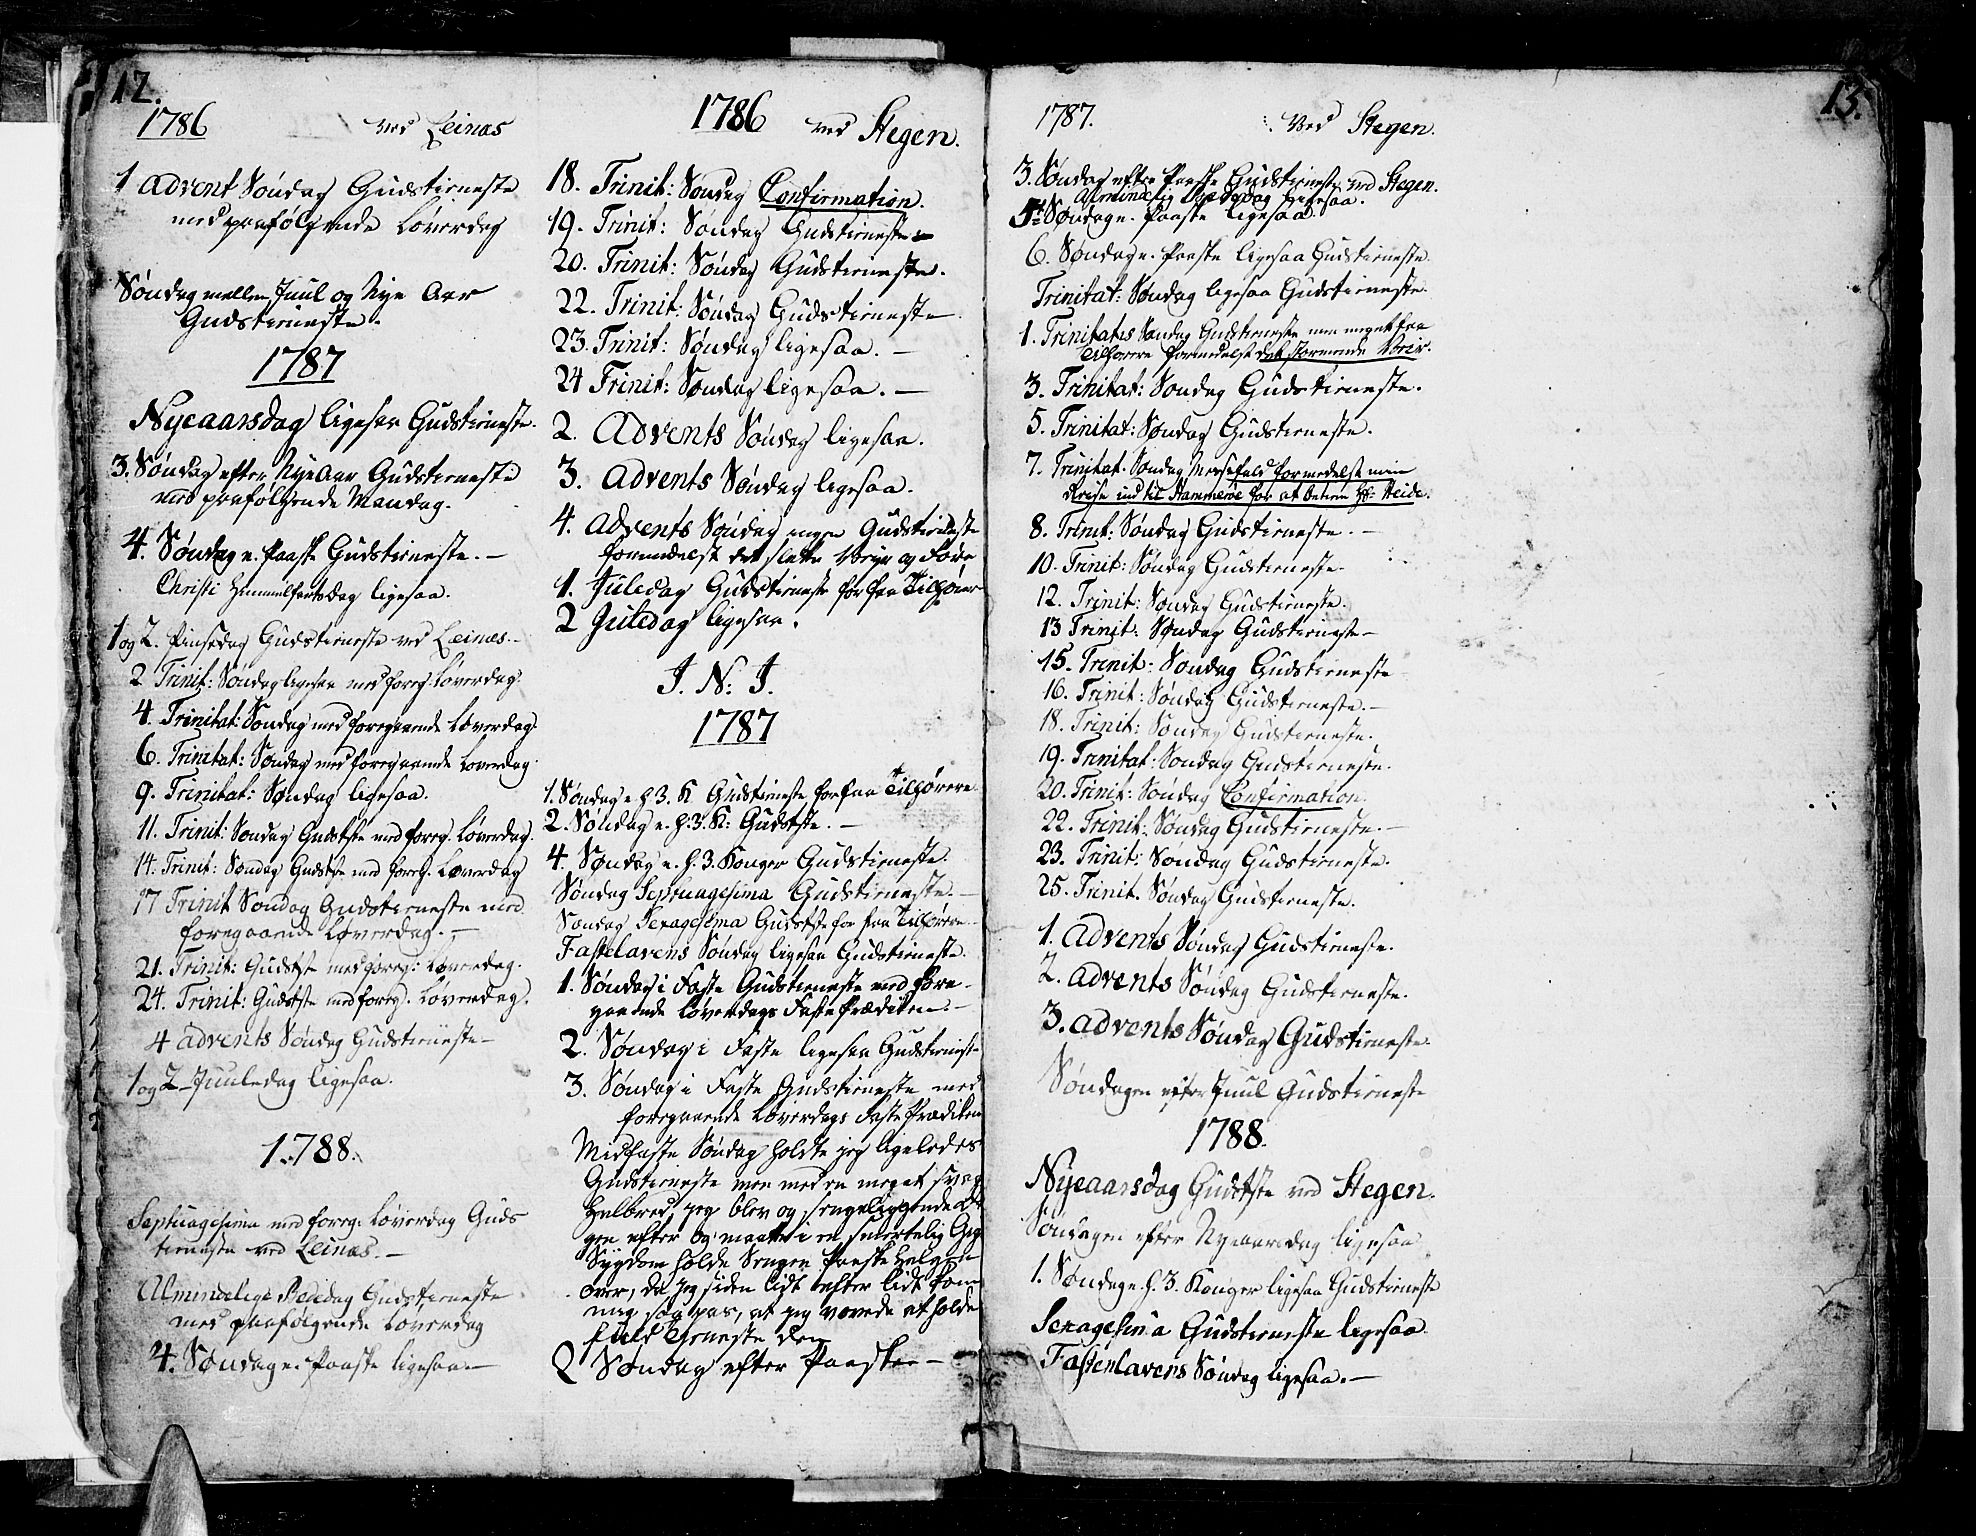 12.
1786 ved Leinæs
1 Advent Søndag Gudstieneste
med paafølgende Løverdag
Søndag mellem Juul og Nye Aar
Gudstieneste.
1787
Nyeaarsdag ligesaa Gudstieneste.
3. Søndag efter Nye Aar Gudstieneste
med paafølgende Mandag.
4. Søndag e. Paaske Gudstieneste. —
Christi Himmelfartsdag ligesaa.
1 og 2. Pinsedag Gudstieneste ved Leinæs. –
2 Trinit: Søndag ligesaa med foreg: Løverdag.
4. Trinitat: Søndag med foregaaende Løverdag.
6. Trinitat: Søndag med foregaaende Løverdag.
9. Trinitat: Søndag ligesaa.
11. Trinit: Søndag Gudstste med foreg. Løverdag.
14. Trinit: Søndag Gudstste med foreg. Løverdag
17 Trinit Søndag Gudstieneste med
foregaaende Løverdag. –
21. Trinit: Gudstste med foreg: Løverdag.
24. Trinit: Gudstste med foreg. Løverdag.
4 Advents Søndag Gudstieneste –
1 og 2 Juuledag ligesaa.
1788.
Septuagesima med foreg. Løverdag Guds
tieneste ved Leinæs. —
Almindelige Bededag Gudstieneste
med paafølgende Løverdag
4. Søndag e. Paaske ligesaa. —
1786 ved Stegen.
18. Trinit: Søndag Confirmation.
19. Trinit: Søndag Gudstieneste
20. Trinit: Søndag Gudstieneste.
22. Trinit: Søndag Gudstieneste.
23. Trinit: Søndag ligesaa. —
24 Trinit: Søndag ligesaa. —
2. Advents Søndag ligesaa.
3. Advents Søndag ligesaa.
4. Advents Søndag ingen Gudstieneste
formedelst det slette Veyr og Føre
1. Juledag Gudstieneste for faa Tilhører
2 Juledag ligesaa.
J. N: J.
1787
1. Søndag e. h. 3. K Gudstieneste for faa Tilhørere
2. Søndag e. h: 3. K: Gudstste. —
4. Søndag e. h. 3. Konger Gudstieneste.
Søndag Septuagesima Gudstieneste. —
Søndag Sexagesima Gudstste for faa Tilhørere
Fastelavens Søndag ligesaa Gudstieneste.
1. Søndag i Faste Gudstieneste med fore-
gaaende Løverdags Faste Prædiken. —
2. Søndag i Faste ligesaa Gudstienest
3. Søndag i Faste Gudstieneste med
foregaaende Løverdags Faste Prædiken
Midfaste Søndag holdte jeg ligeledes
Gudstieneste men med en meget svag
Helbred, jeg blev og sengeliggende
gen efter og maatte i en smertelig
Sygdom holde Sengen Paaske Helgen
over, da jeg siden lidt efter lidt kom
mig saa pas, at jeg vovede at holde
fuld Tieneste den
2 Søndag efter Paaske —
13.
1787. Ved Stegen.
3. Søndag efter Paaske Gudstieneste ved Stegen.
Almindelig Bededag ligesaa.
5te Søndag e. Paaske ligesaa.
6. Søndag e. Paaske ligesaa Gudstieneste.
Trinitat: Søndag ligesaa Gudstieneste.
1. Trinitatis Søndag Gudstieneste men meget faa
Tilhørere formedelst det stormende Veir.
3. Trinitat: Søndag Gudstieneste.
5. Trinitat: Søndag Gudstieneste.
7. Trinitat. Søndag Messefald formedelst min
Reise ind til Hammerøe for at betiene Hr: Heide.
8. Trinit: Søndag Gudstieneste. —
10. Trinit: Søndag Gudstieneste.
12. Trinit: Søndag Gudstieneste.
13 Trinit: Søndag Gudstieneste —
15. Trinit: Søndag Gudstieneste
16. Trinit: Søndag Gudstieneste. —
18. Trinit: Søndag Gudstieneste.
19. Trinitat: Søndag Gudstieneste.
20. Trinit: Søndag Confirmation.
22. Trinit: Søndag Gudstieneste. —
23. Trinit: Søndag Gudstieneste.
25. Trinit. Søndag Gudstieneste.
1. Advents Søndag Gudstieneste.
2. Advents Søndag Gudstieneste.
3. Advents Søndag Gudstieneste.
Søndagen efter Juul Gudstieneste
1788.
Nyeaarsdag Gudstste ved Stegen.
Søndagen efter Nyeaarsdag ligesaa
1. Søndag e. h. 3. Konger ligesaa Gudstieneste
Sexagesima Gudstieneste ligesaa.
Fastenlavens Søndag ligesaa. —